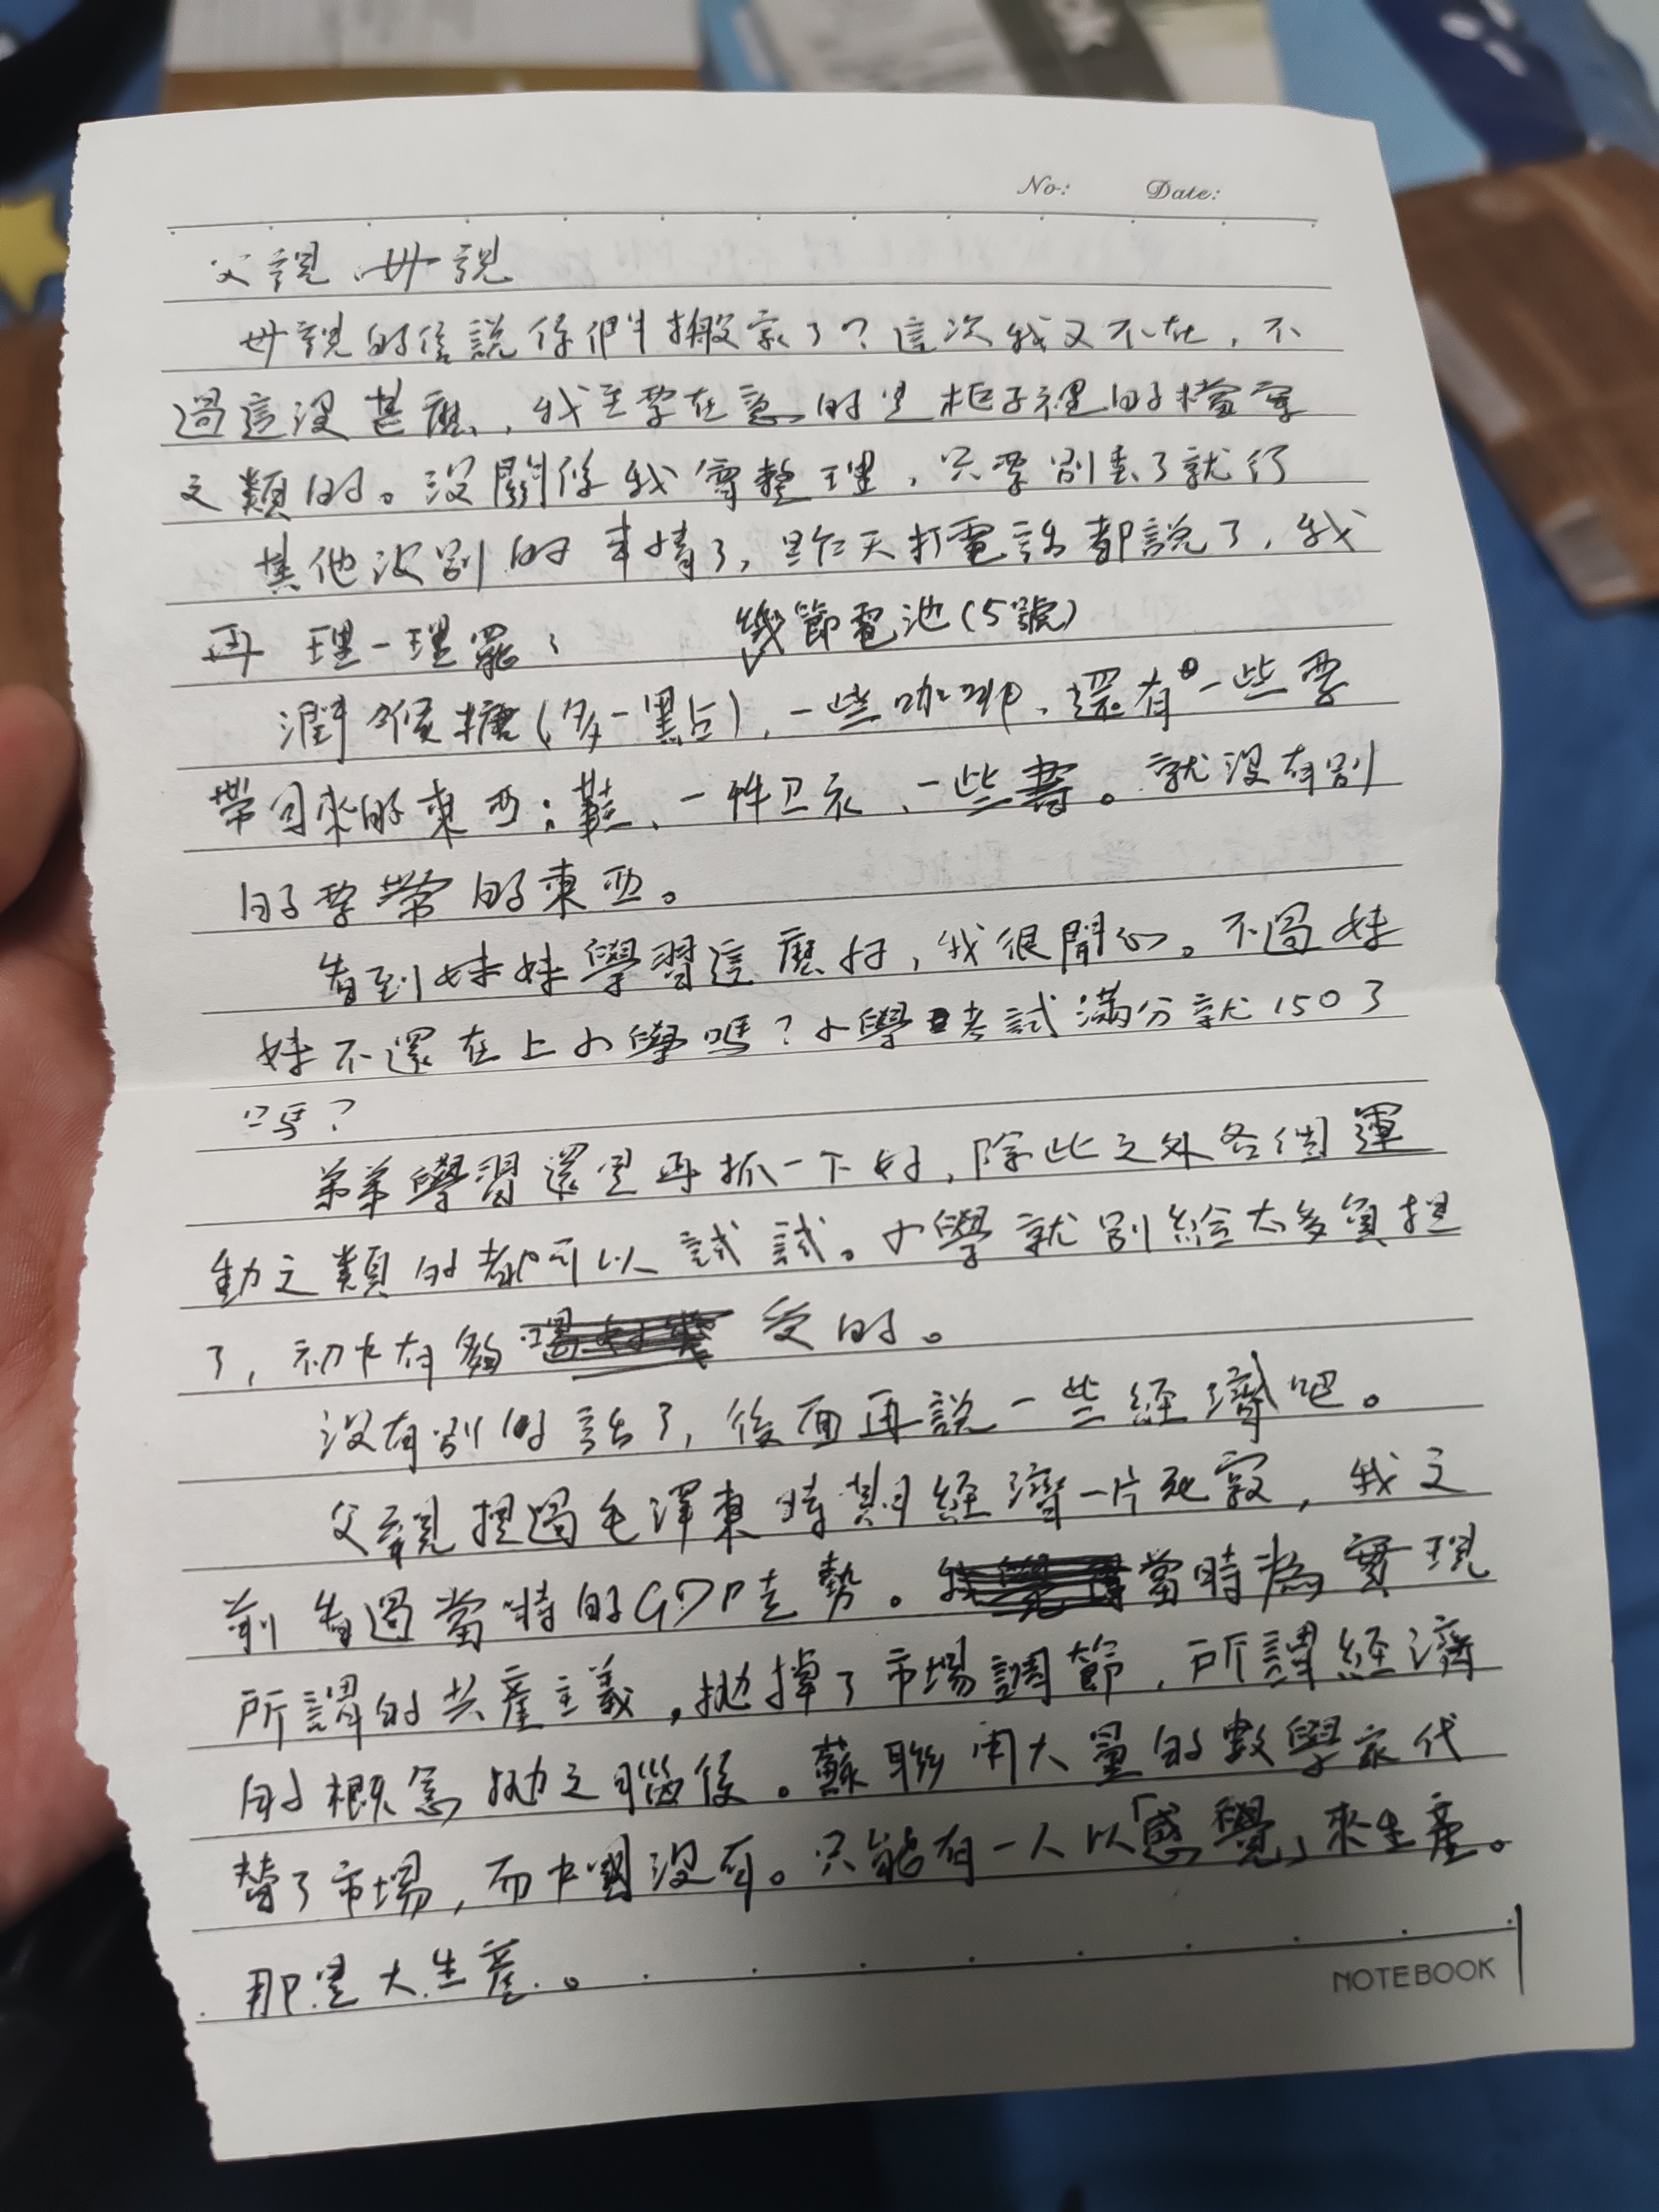 No: Date:
父親、母親
母親的信說你們搬家了？這次我又不在，不
過這沒甚麼，我主要在意的是柜子裡的檔案
之類的。沒關係我會整理，只要別丟了就行
其他沒別的事情了，昨天打電話都說了，我
再理一理罷：
幾節電池(5號)
潤喉糖(多一點)，一些咖啡、還有一些要
帶回來的東西：鞋、一件卫衣、一些書。就沒有別
的要帶的東西。
看到妹妹學習這麼好，我很開心。不過妹
妹不還在上小學嗎？小學考試滿分就150了
嗎？
弟弟學習還是再抓一下好，除此之外各個運
動之類的都可以試試。小學就別給太多負担
了，初中有夠受的。
沒有別的話了，後面再說一些經濟吧。
父親提過毛澤東時期經濟一片死寂，我之
前看過當時的GDP走勢。當時為實現
所謂的共產主義，拋掉了市場調節，所謂經濟
的概念拋之腦後。蘇聯用大量的數學家代
替了市場，而中國沒有。只能有一人以「感覺」來生產。
那是大生產。
NOTEBOOK